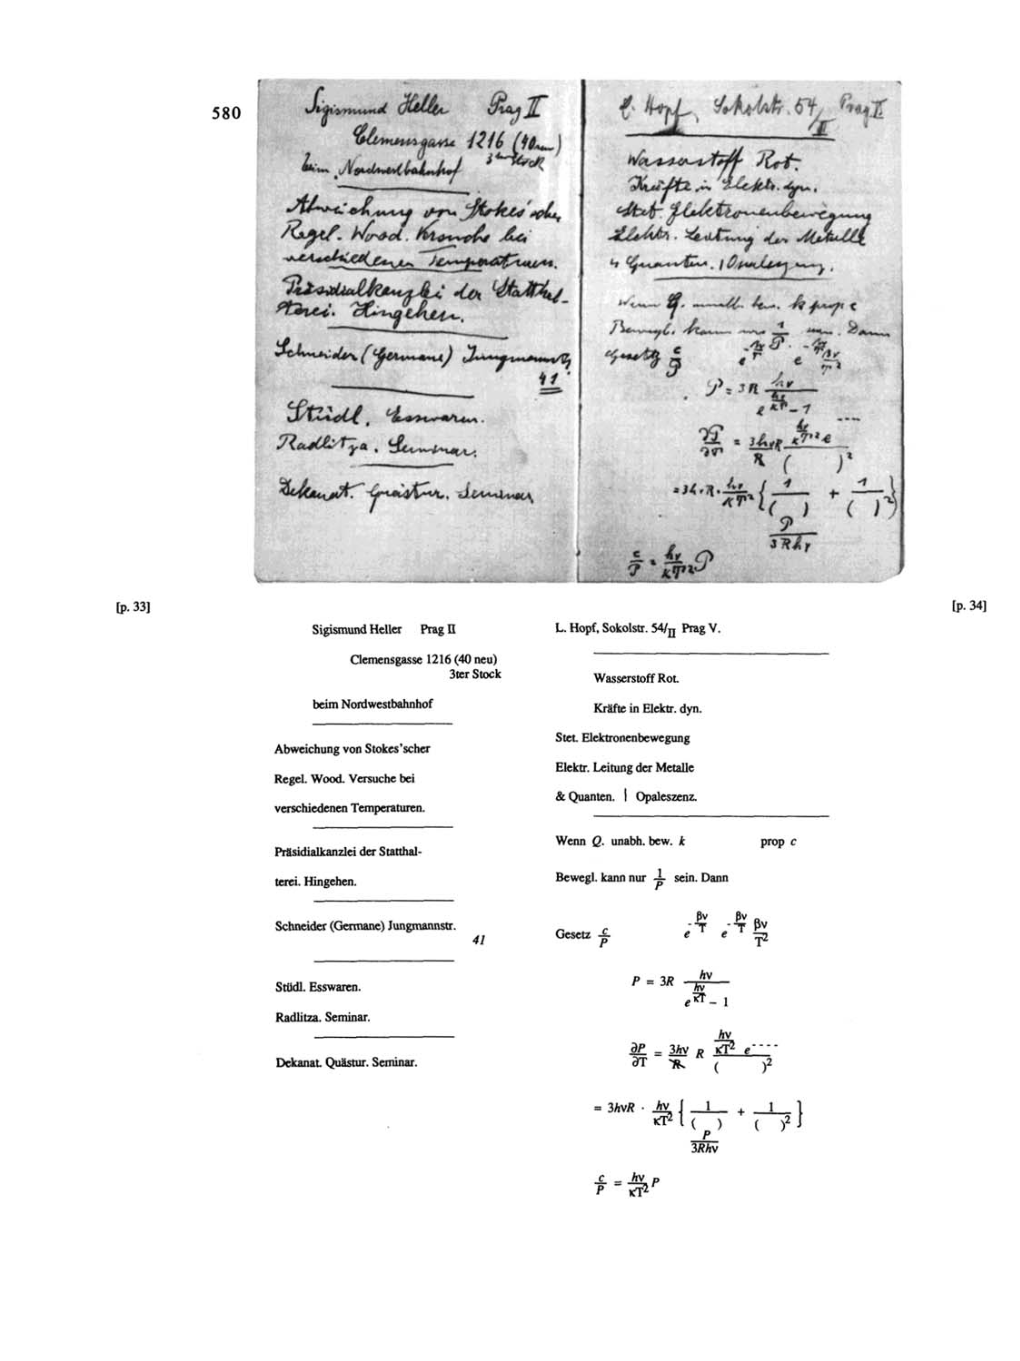 580
Sigismund Heller Prag II
Clemensgasse 1216 (40 neu)
3ter Stock
beim Nordwestbahnhof
Abweichung von Stokes'scher
Regel. Wood. Versuche bei
verschiedenen Temperaturen.
Präsidialkanzlei der Statthal-
terei. Hingehen.
Schneider (Germane) Jungmannstr.
41
Stüdl. Esswaren.
Radlitza. Seminar.
Dekanat. Quästur. Seminar
L. Hopf, Sokolstr. 54/II Prag V.
Wasserstoff Rot.
Kräfte in Elektr. dyn.
Stet. Elektronenbewegung
Elektr. Leitung der Metalle
& Quanten. | Opaleszenz.
Wenn Q. unabh. bew. k prop c
Bewegl. kann nur 1/P sein. Dann
Gesetz c/P e^{-βν/T} e^{-βν/T} βν/T²
P = 3R hν/(e^{hν/κT} – 1)
∂P/∂T = 3hν/R R (hν/κT² e^{----})/( )²
= 3h·R· hν/κT² {1/( ) + 1/( )²}
P/3Rhν
c/P = hν/κT² P
[p. 33]
[p. 34]
Sigismund Heller Prag II
Clemensgasse 1216 (40 neu)
3ter Stock
beim Nordwestbahnhof
Abweichung von Stokes'scher
Regel. Wood. Versuche bei
verschiedenen Temperaturen.
Präsidialkanzlei der Statthal-
terei. Hingehen.
Schneider (Germane) Jungmannstr.
41
Stüdl. Esswaren.
Radlitza. Seminar.
Dekanat. Quästur. Seminar.
L. Hopf, Sokolstr. 54/II Prag V.
Wasserstoff Rot.
Kräfte in Elektr. dyn.
Stet. Elektronenbewegung
Elektr. Leitung der Metalle
& Quanten. | Opaleszenz.
Wenn Q. unabh. bew. k prop c
Bewegl. kann nur 1/P sein. Dann
Gesetz c/P e^{-βν/T} e^{-βν/T} βν/T²
P = 3R hν/(e^{hν/κT} – 1)
∂P/∂T = 3hν/R R (hν/κT² e^{----})/( )²
= 3hνR · hν/κT² {1/( ) + 1/( )²}
P/3Rhν
c/P = hν/κT² P